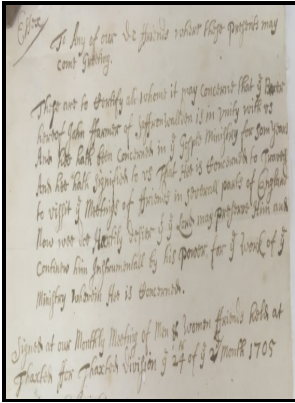 Essex
To Any of our Dr ffriends where these presents may
come Greeting.
These are to Certify all whome it may Concerne that ye Bearer
hereof John ffarmer of Saffronwalden is in Unity with us
And hee hath been Concerned in ye Gosple Ministry for som years
And hee hath Signified to vs That Hee is Concerned to Travell
to vissit ye Meetings of ffriends in severall parts of England
Now wee doe Hartily desier yt ye Lord may preserve Him and
Continew him Instrumentall by his power, for ye Work of ye
Ministry wherein Hee is Concerned.
Signed at our Monthly Meeting of Men & Women ffriends held at
Thaxted ffor Thaxted Division ye 24th of ye Month 1705